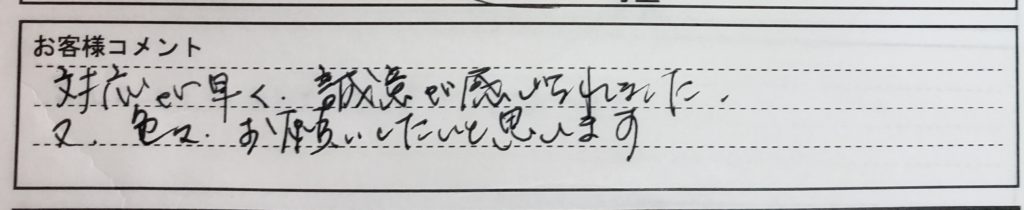 お客様コメント
対応が早く、誠意が感じられました。
又、色々、お願いしたいと思います